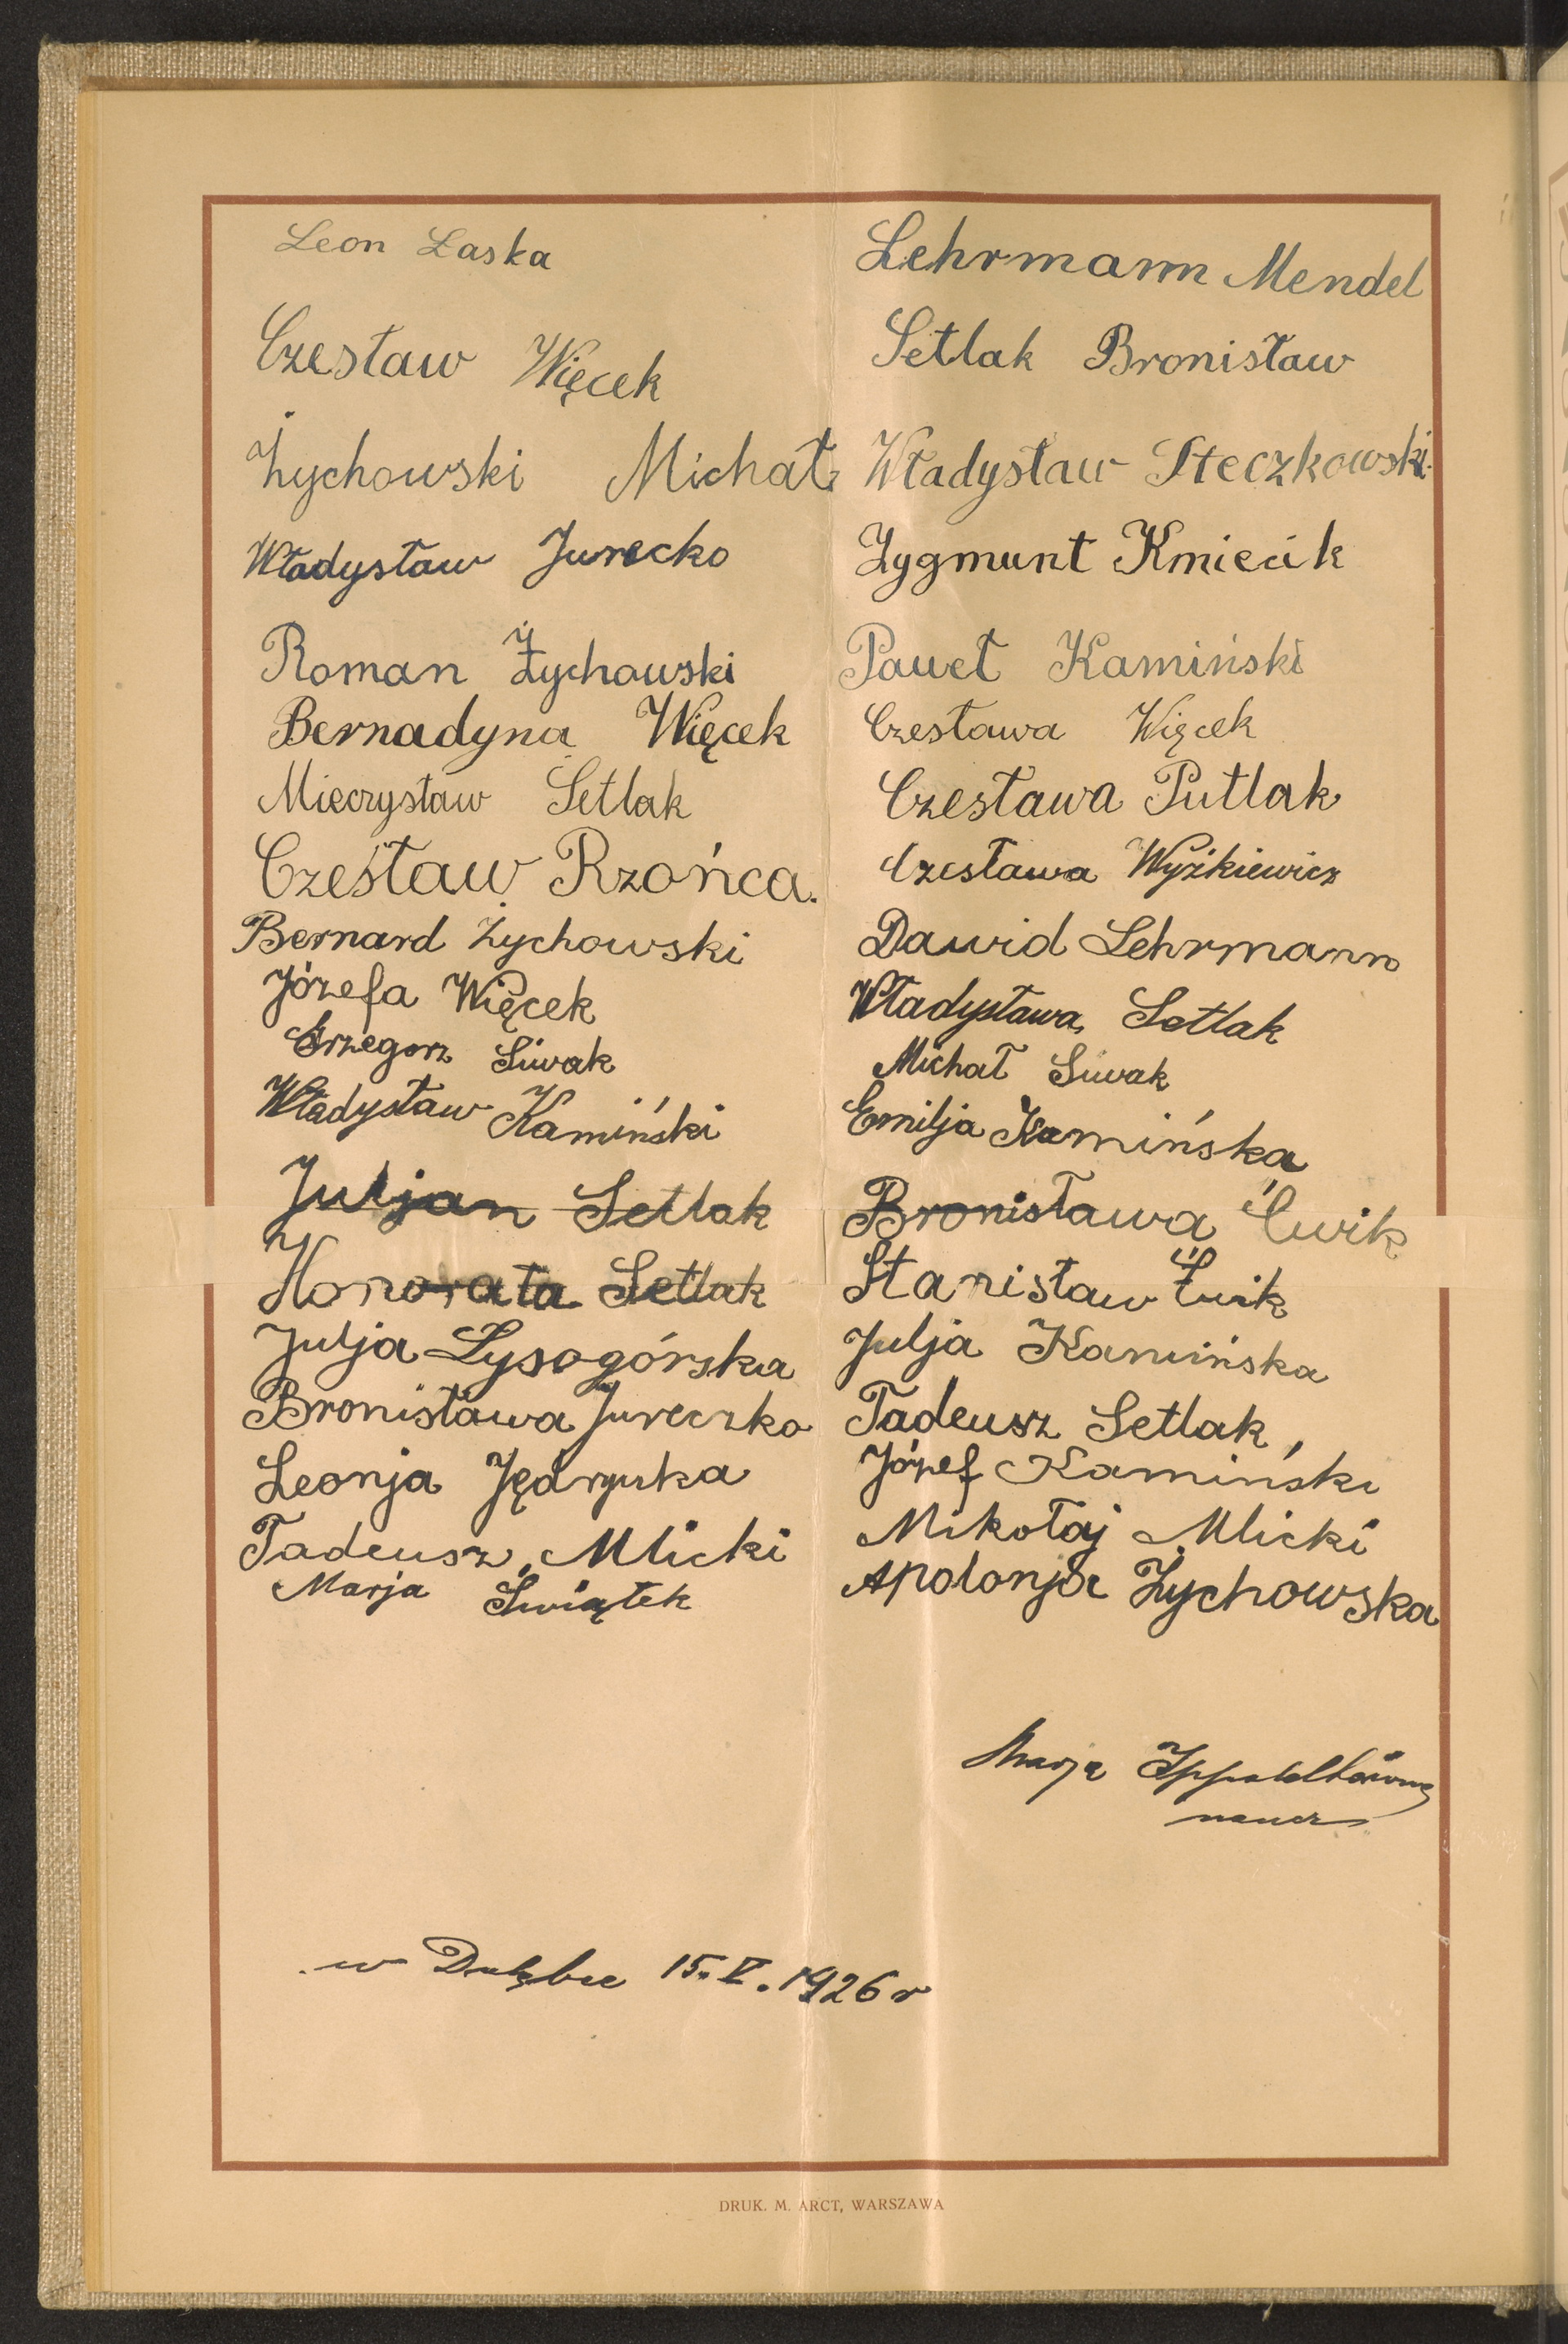 Leon Łaska
Czesław Więcek
Żychowski Michał
Władysław Jurecko
Roman Żychowski
Bernadyna Więcek
Mieczysław Setlak
Czesław Rzońca.
Bernard Żychowski
Józefa Więcek
Grzegorz Siwak
Władysław Kamiński
Juljan Setlak
Honorata Setlak
Julja Łysogórska
Bronisława Jureczko
Leonja Jędryska
Tadeusz Mlicki
Marja Świątek
Lehrmann Mendel
Setlak Bronisław
Władysław Steczkowski
Zygmunt Kmiecik
Paweł Kamiński
Czesława Więcek
Czesława Putlak
Czesława Wyżkiewicz
Dawid Lehrmann
Władysława Setlak
Michał Siwak
Emilja Kamińska
Bronisława Ćwik
Stanisław Ćwik
Julja Kamińska
Tadeusz Setlak
Józef Kamiński
Mikołaj Mlicki
Apolonja Żychowska
Marja
naucz
w Dulębce 15.V.1926 r
DRUK. M. ARCT, WARSZAWA